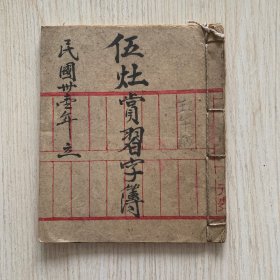 伍灶賞習字簿
民國卅壹年立